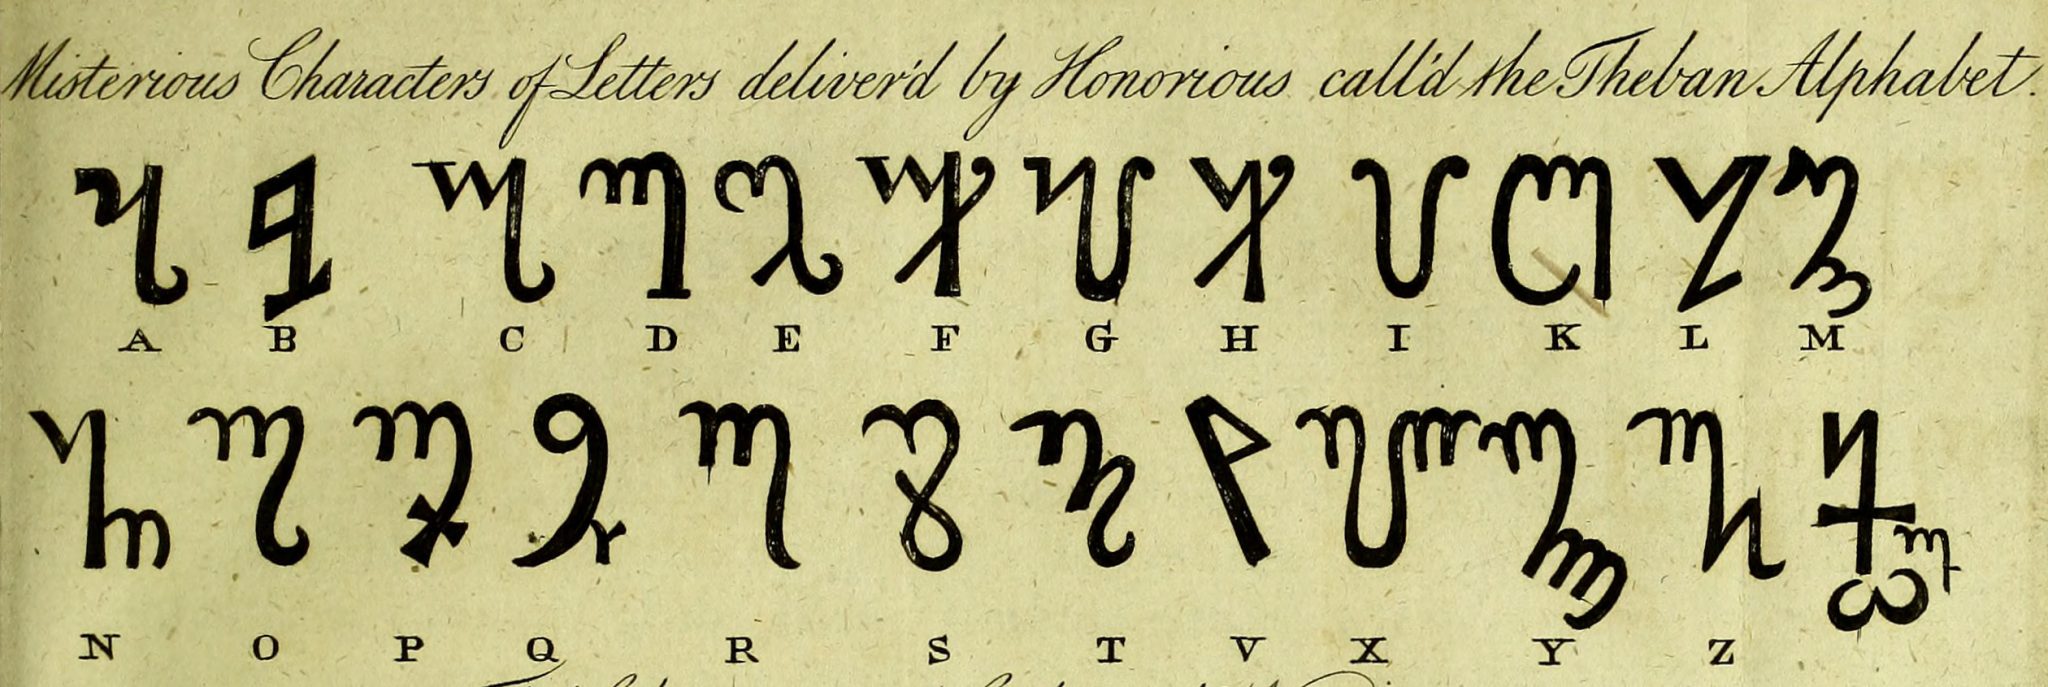 Misterious Characters of Letters deliver'd by Honorious call'd the Theban Alphabet.
A B C D E F G H I K L M
N O P Q R S T V X Y Z